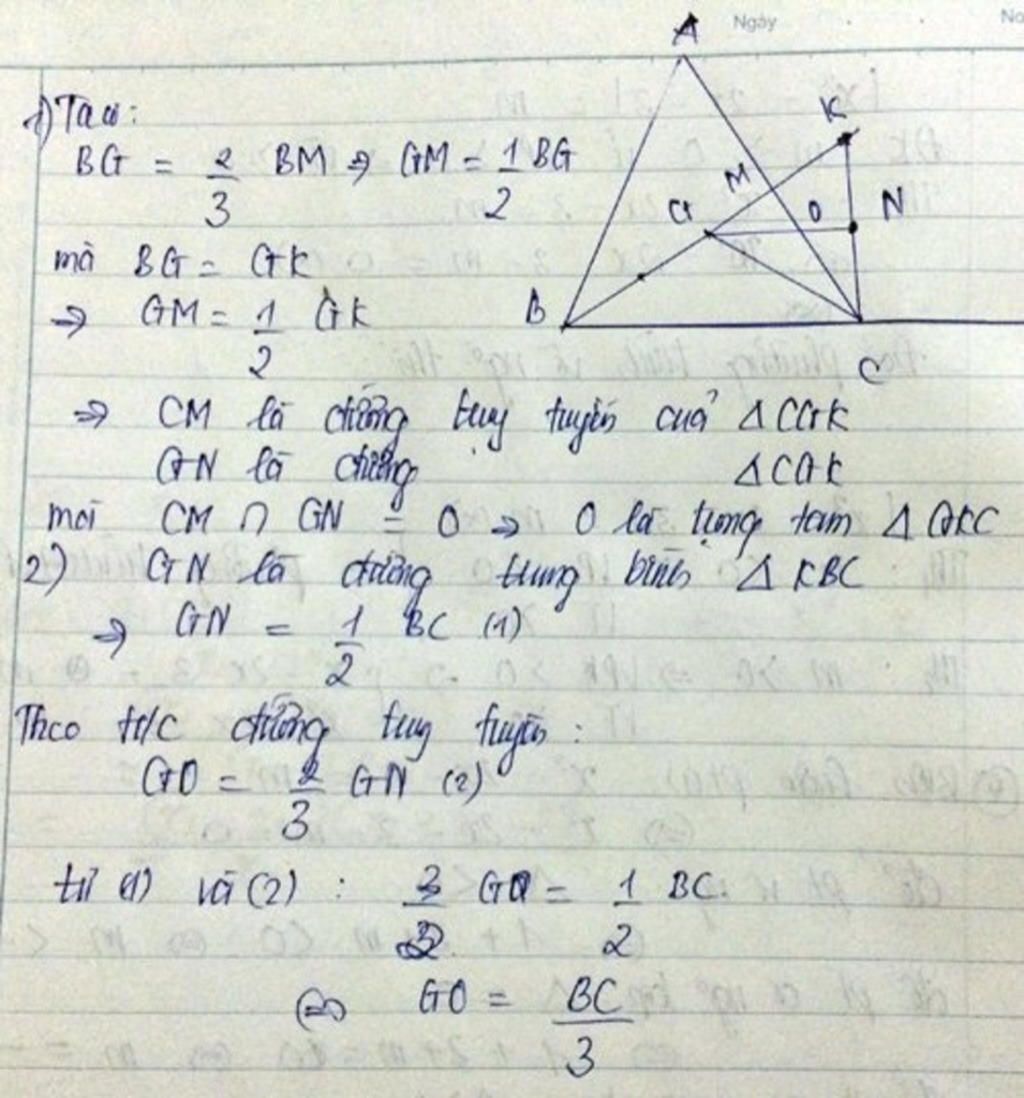 Ngày
No
A
K
M
N
G
O
B
C
1) Ta có:
BG = 2/3 BM ⇒ GM = 1/2 BG
mà BG = GK
⇒ GM = 1/2 GK
⇒ CM là đường trung tuyến của Δ CGK
GN là đường Δ CGK
mà CM ∩ GN = O ⇒ O là trọng tâm Δ GKC
2) GN là đường trung bình Δ KBC
⇒ GN = 1/2 BC (1)
Theo t/c đường trung tuyến:
GO = 2/3 GN (2)
từ (1) và (2): 3/2 GO = 1/2 BC.
⇔ GO = BC/3